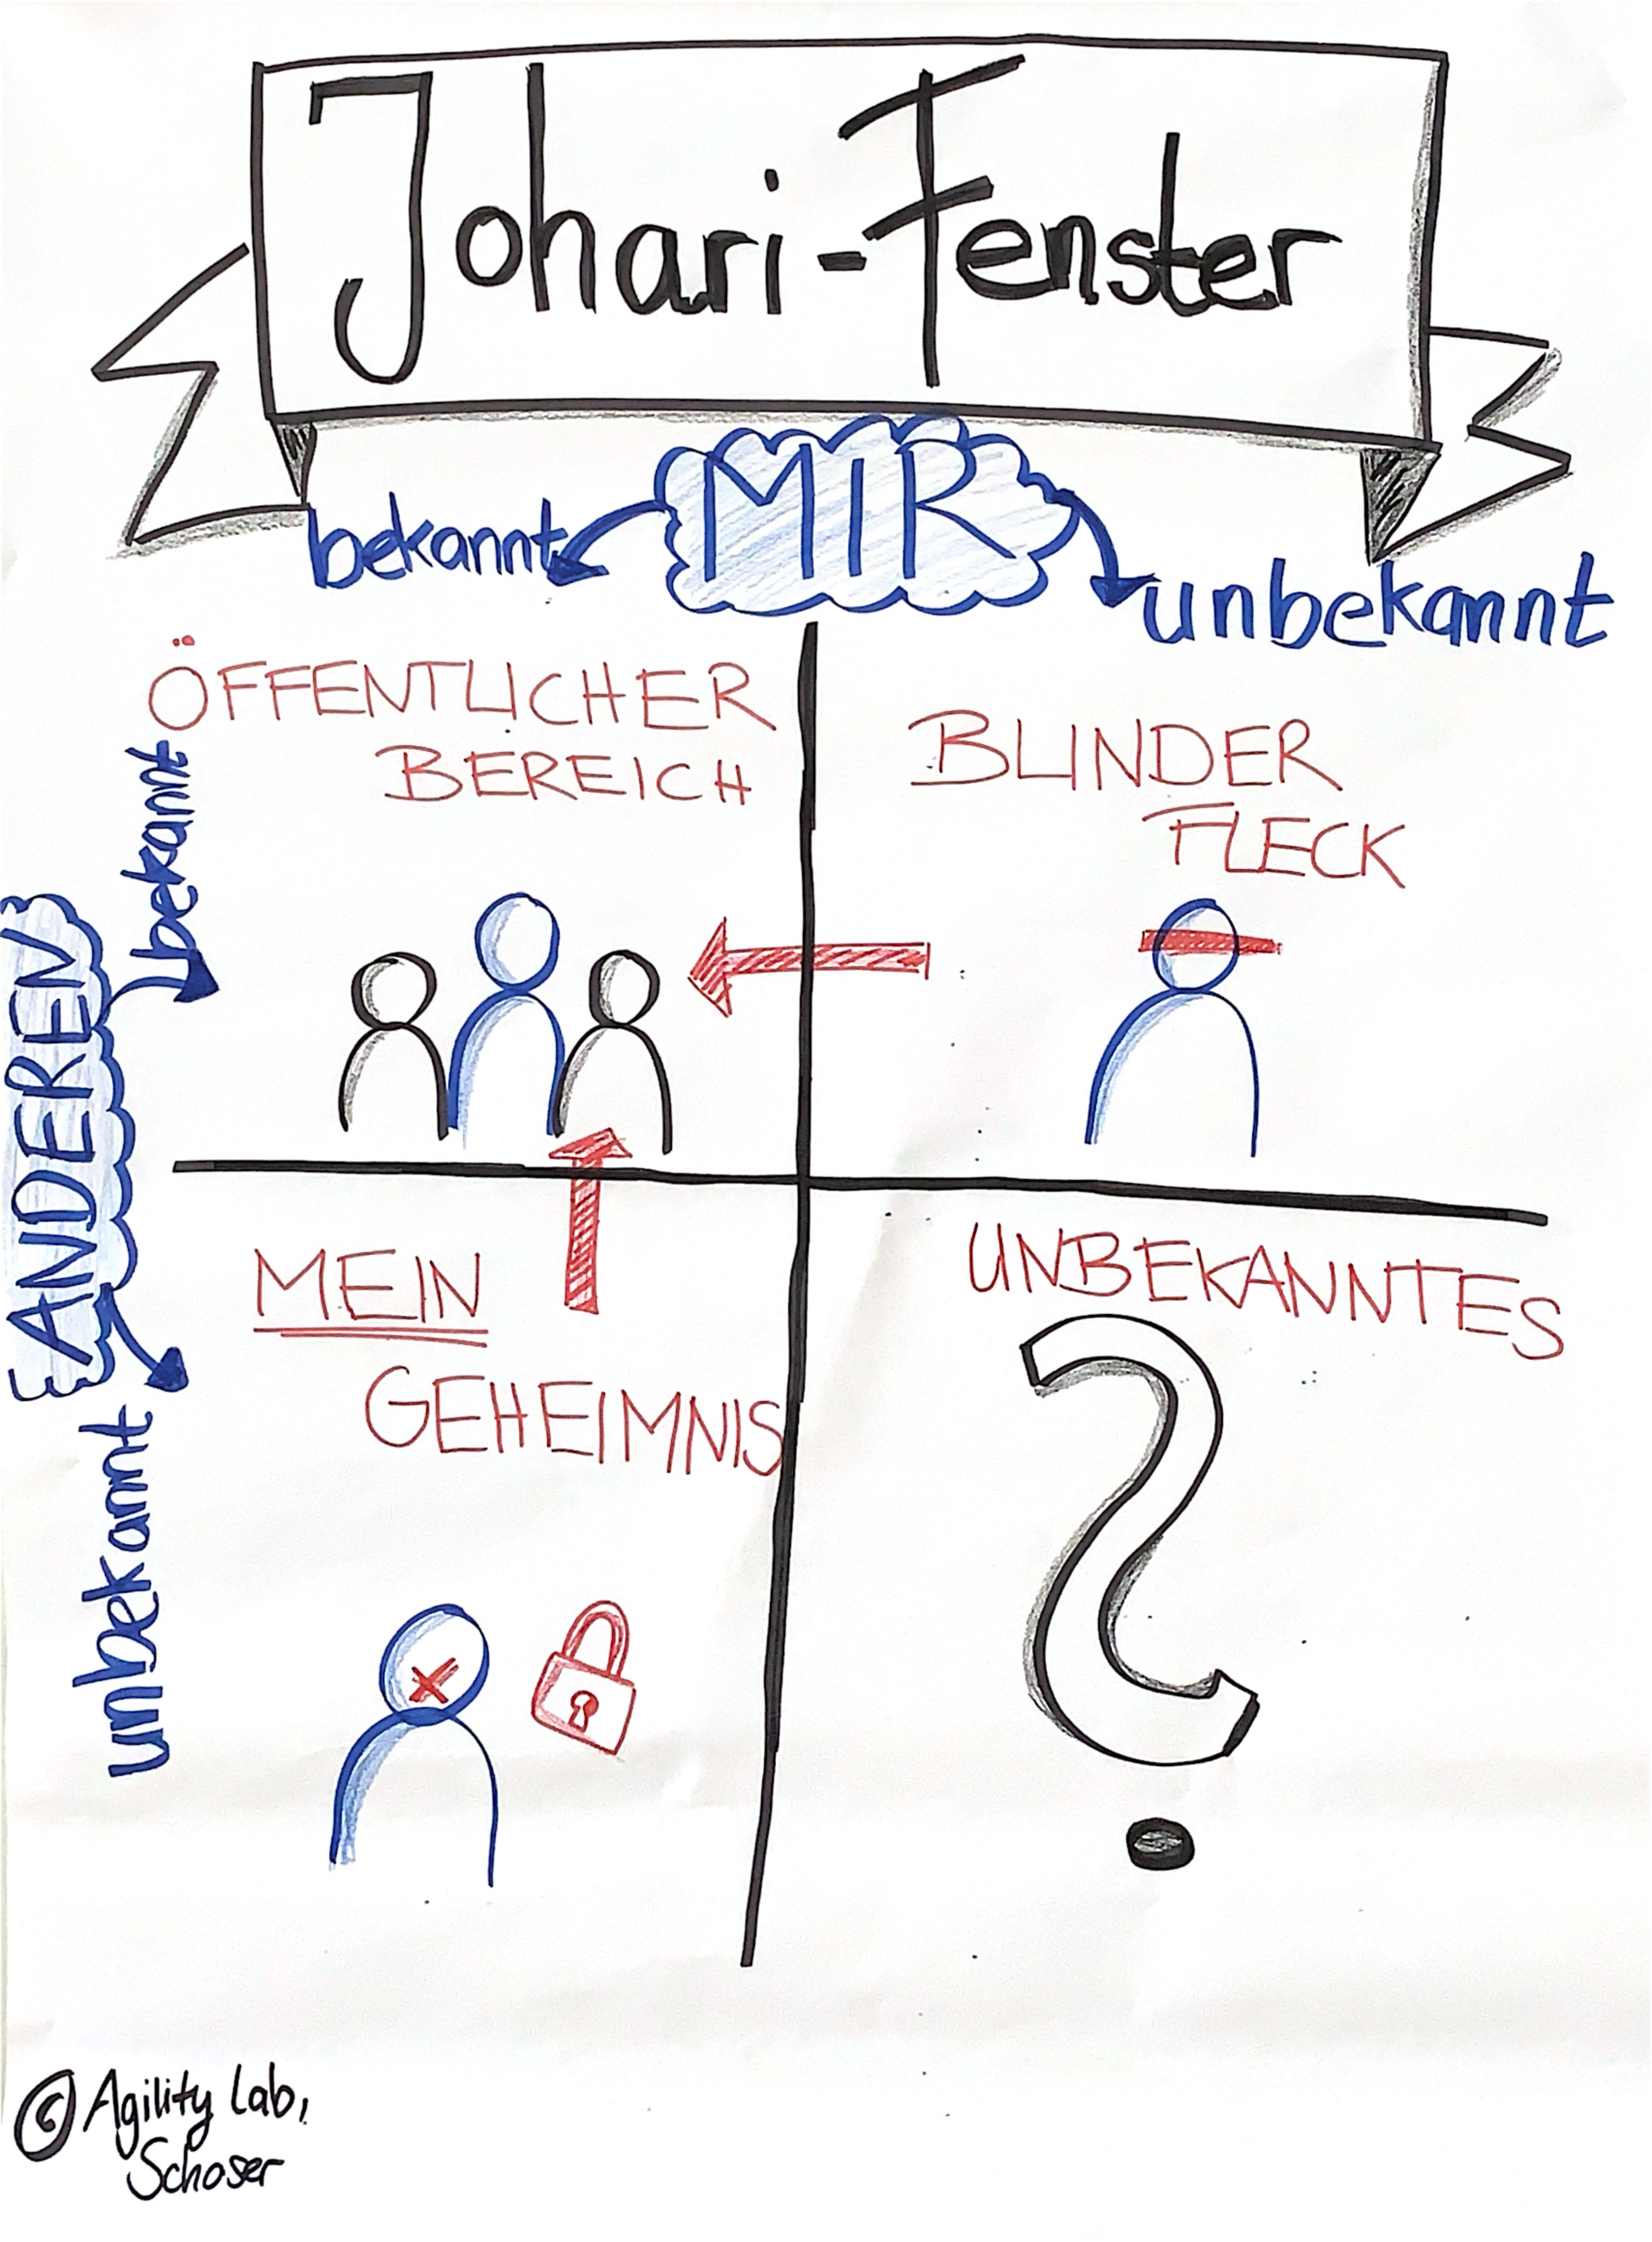 Johari-Fenster
MIR
bekannt
unbekannt
ÖFFENTLICHER
BEREICH
BLINDER
FLECK
ANDEREN
bekannt
unbekannt
MEIN
GEHEIMNIS
UNBEKANNTES
?
© Agility Lab,
Schoser